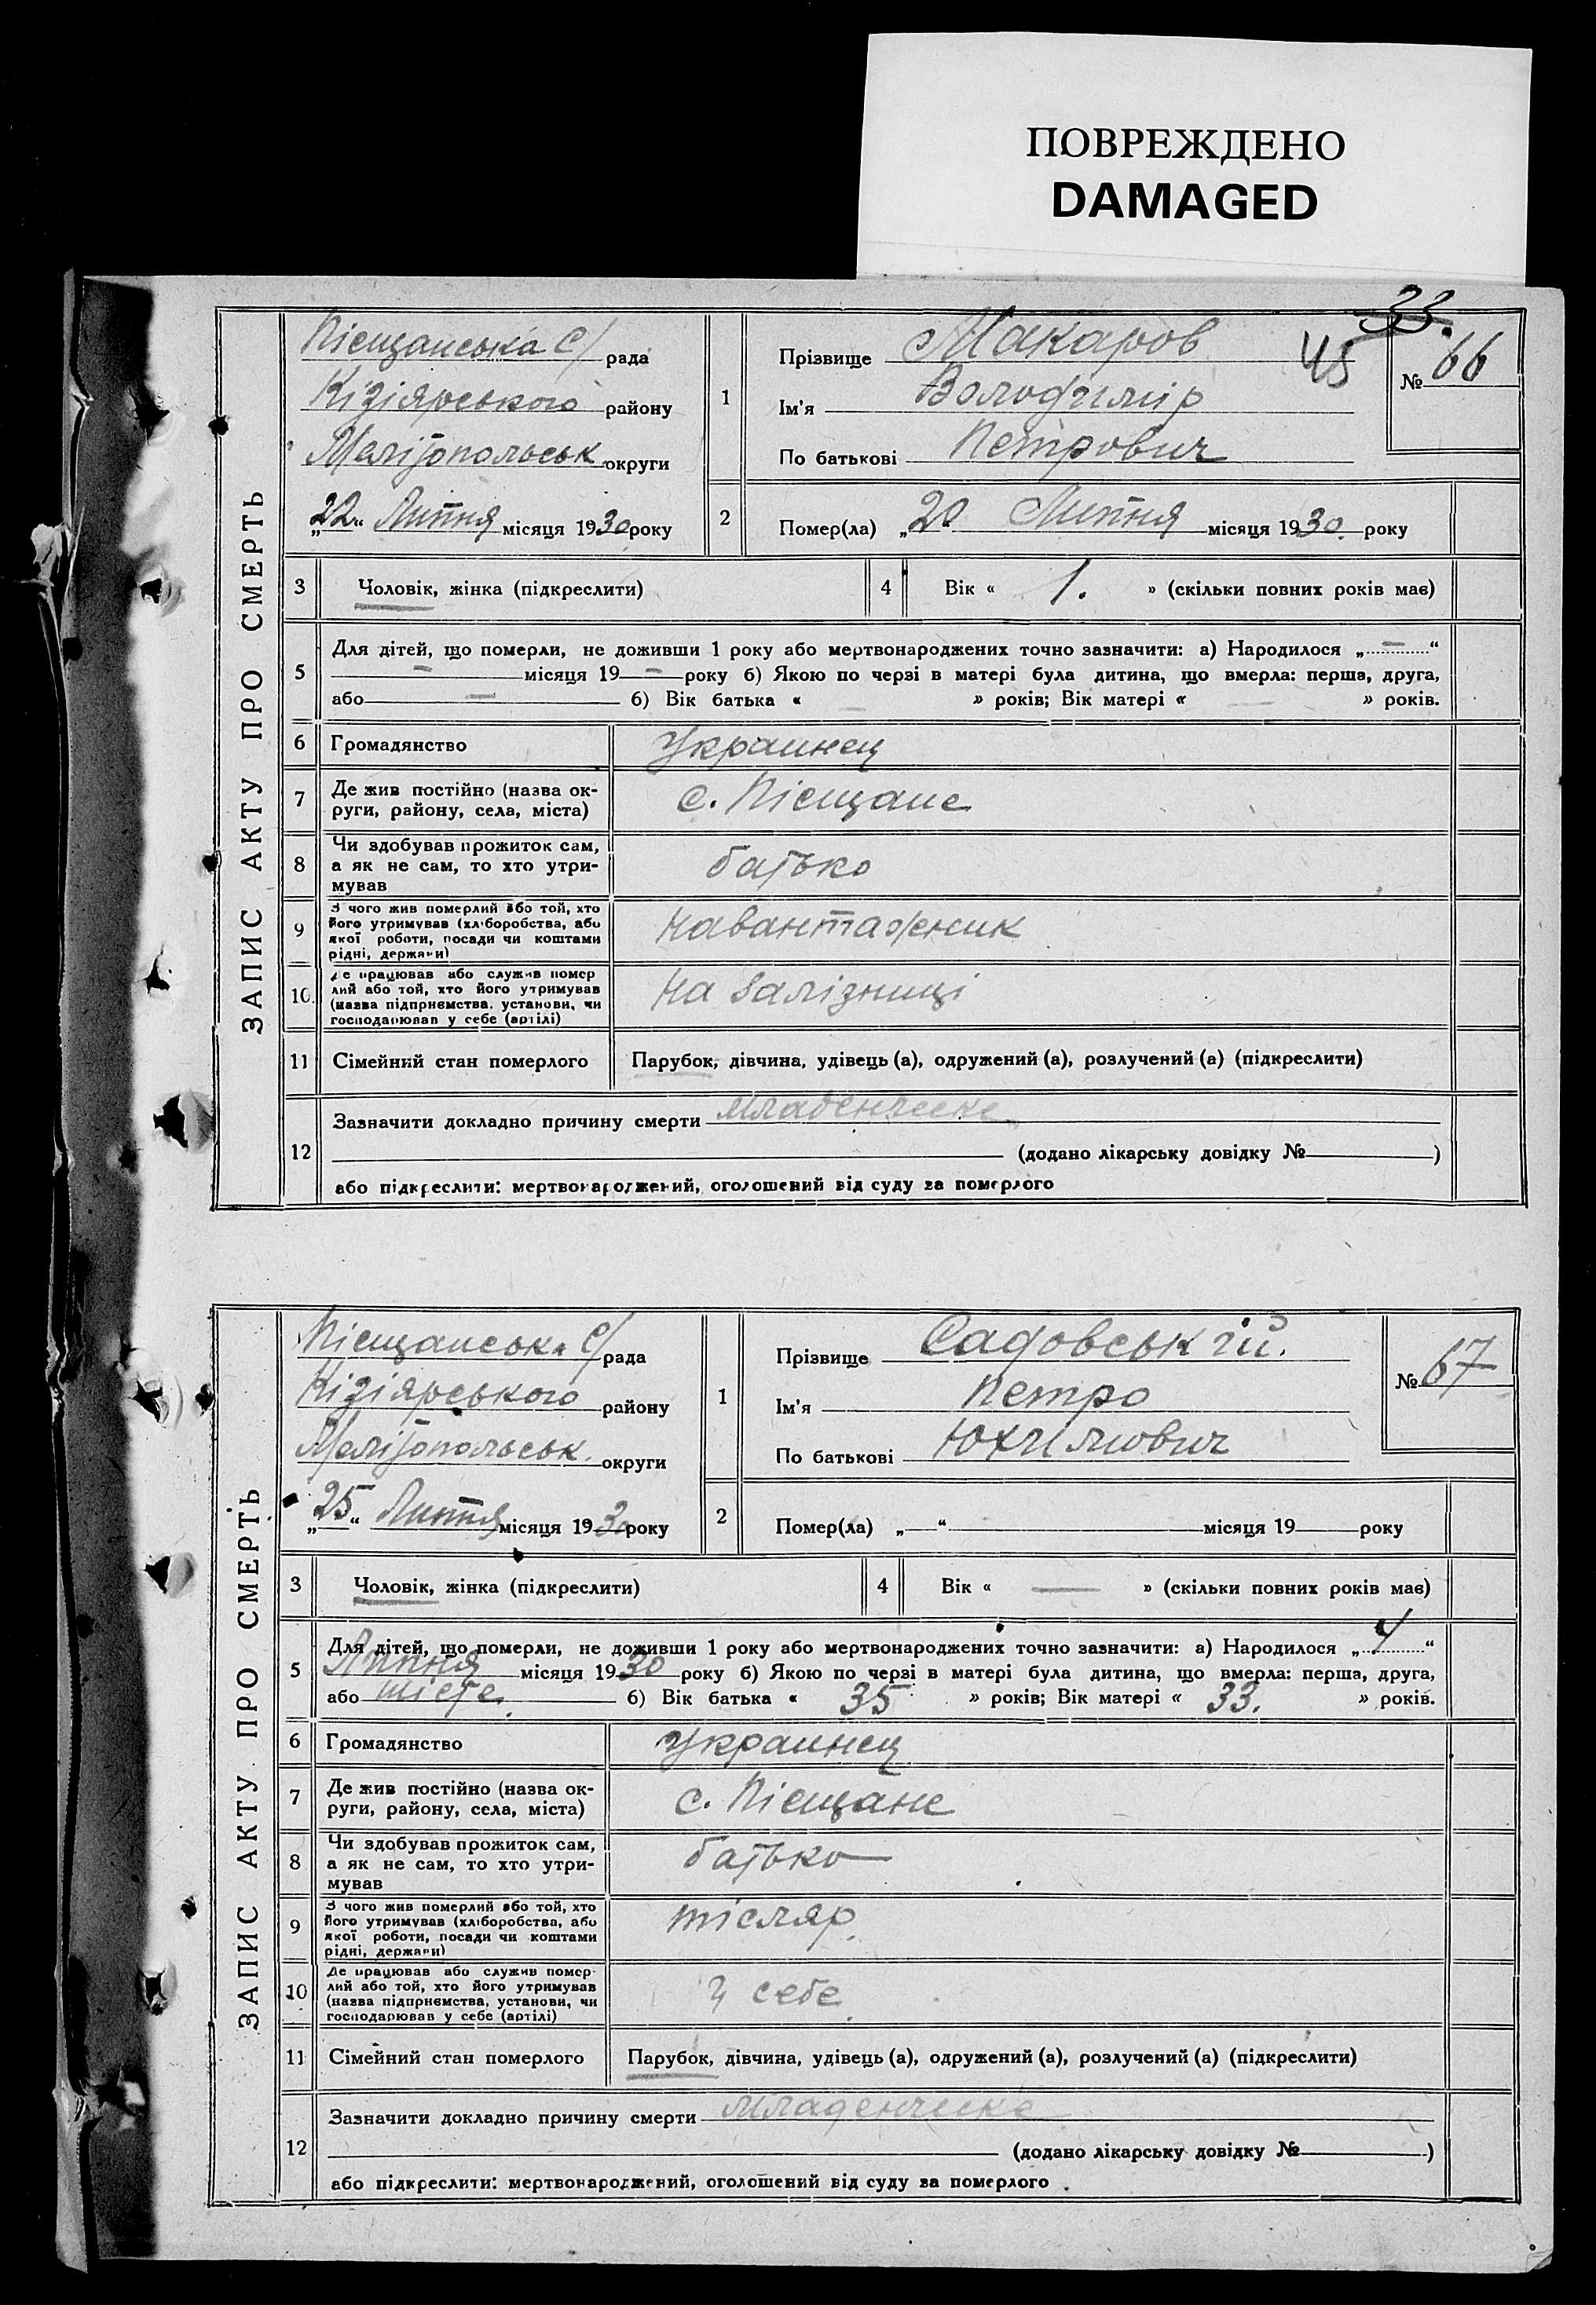 ПОВРЕЖДЕНО
DAMAGED
33.
45
ЗАПИС АКТУ ПРО СМЕРТЬ
Піещанська С/ рада
Кізіярського району
Меліјопольськ округи
„22“ Липня місяця 1930 року
1
Прізвище Макаров
Ім'я Володимір
По батькові Петрович
№ 66
2
Помер(ла) „20 Липня місяця 1930. року
3 Чоловік, жінка (підкреслити)
4 Вік « 1. » (скільки повних років має)
5
Для дітей, що померли, не доживши 1 року або мертвонароджених точно зазначити: а) Народилося „ – “
– місяця 19 – року б) Якою по черзі в матері була дитина, що вмерла: перша, друга,
або – б) Вік батька « — » років; Вік матері « — » років.
6 Громадянство Украинец
7 Де жив постійно (назва ок-
руги, району, села, міста) с. Піещане
8 Чи здобував прожиток сам,
а як не сам, то хто утри-
мував батько
9 З чого жив померлий або той, хто
його утримував (хліборобства, або
якої роботи, посади чи коштами
рідні, держави) навантажник
10. Де працював або служив помер
лий або той, хто його утримував
(назва підприємства. установи, чи
господарював у себе (артілі) на залізниці
11 Сімейний стан померлого Парубок, дівчина, удівець (а), одружений (а), розлучений (а) (підкреслити)
12
Зазначити докладно причину смерти младенческе
(додано лікарську довідку № )
або підкреслити: мертвонароджений, оголошений від суду за померлого
ЗАПИС АКТУ ПРО СМЕРТЬ
Піещанськ. С/ рада
Кізіярського району
Меліјопольськ. округи
„25“ Липня місяця 1930 року
1
Прізвище Садовський.
Ім'я Петро
По батькові Юхимович
№ 67
2
Помер(ла) „ “ місяця 19 року
3 Чоловік, жінка (підкреслити)
4 Вік « — » (скільки повних років має)
5
Для дітей, що померли, не доживши 1 року або мертвонароджених точно зазначити: а) Народилося „ 4 “
Липня місяця 1930 року б) Якою по черзі в матері була дитина, що вмерла: перша, друга,
або шісте. б) Вік батька « 35 » років; Вік матері « 33. » років.
6 Громадянство Украинец
7 Де жив постійно (назва ок-
руги, району, села, міста) с. Піещане
8 Чи здобував прожиток сам,
а як не сам, то хто утри-
мував батько
9 З чого жив померлий або той, хто
його утримував (хліборобства, або
якої роботи, посади чи коштами
рідні, держави) тісляр
10 Де працював або служив помер-
лий або той, хто його утримував
(назва підприємства, установи, чи
господарював у себе (артілі) у себе
11 Сімейний стан померлого Парубок, дівчина, удівець (а), одружений (а), розлучений (а) (підкреслити)
12
Зазначити докладно причину смерти младенческе
(додано лікарську довідку № )
або підкреслити: мертвонароджений, оголошений від суду за померлого